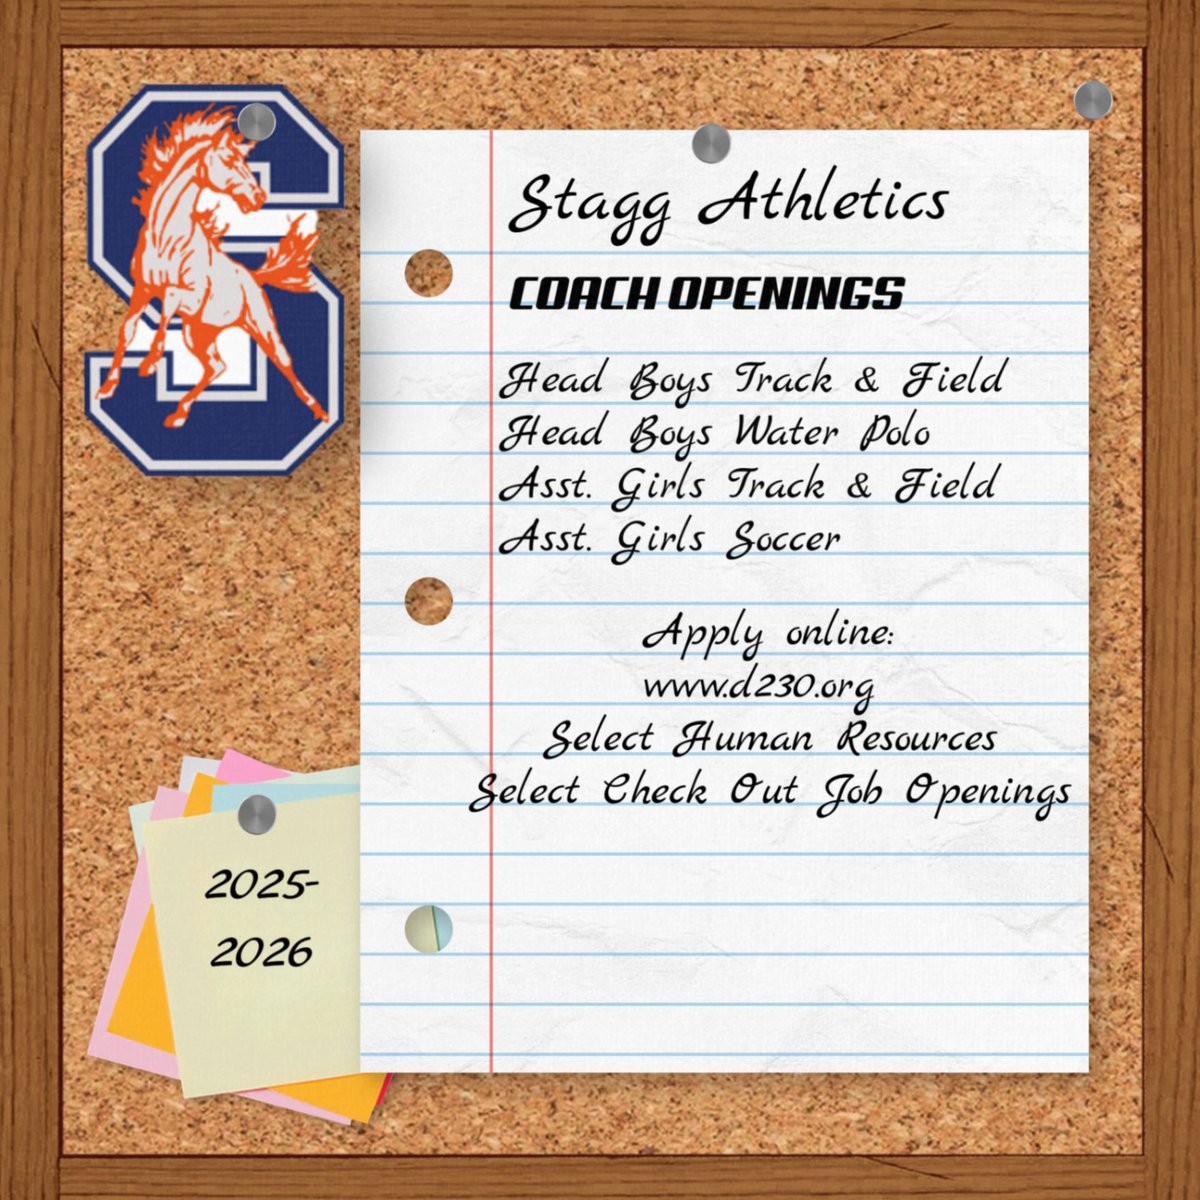 Stagg Athletics
COACH OPENINGS
Head Boys Track & Field
Head Boys Water Polo
Asst. Girls Track & Field
Asst. Girls Soccer
Apply online:
www.d230.org
Select Human Resources
Select Check Out Job Openings
2025-
2026